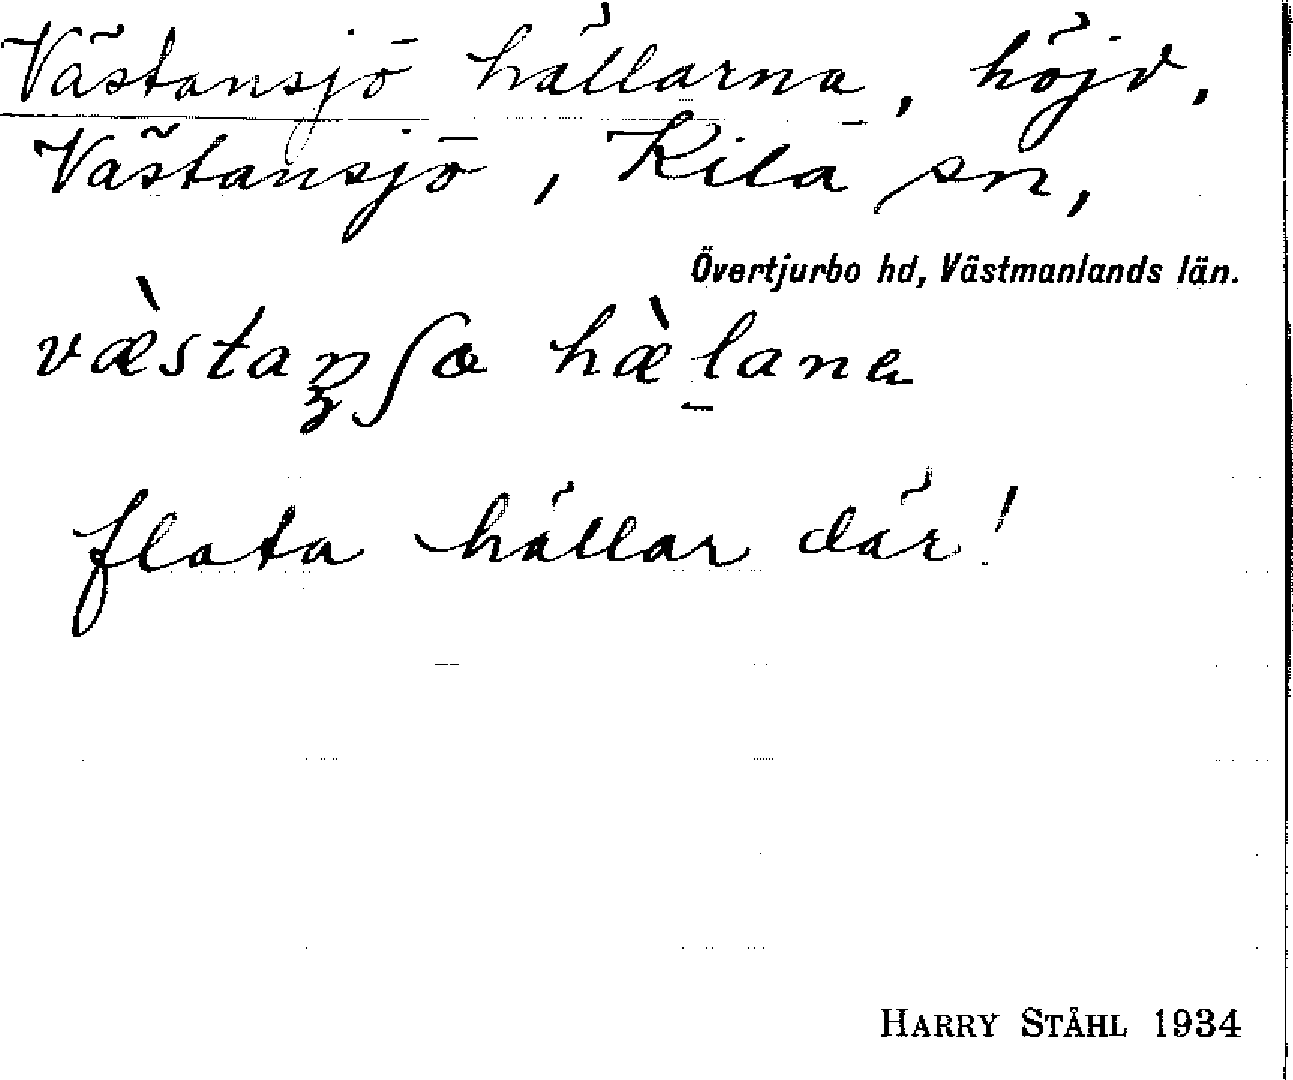 Västansjö hällarna, höjd,
Västansjö, Kila sn,
Övertjurbo hd, Västmanlands län.
væ̀stanʃo hæ̀lana
flata hällar där!
HARRY STÅHL 1934